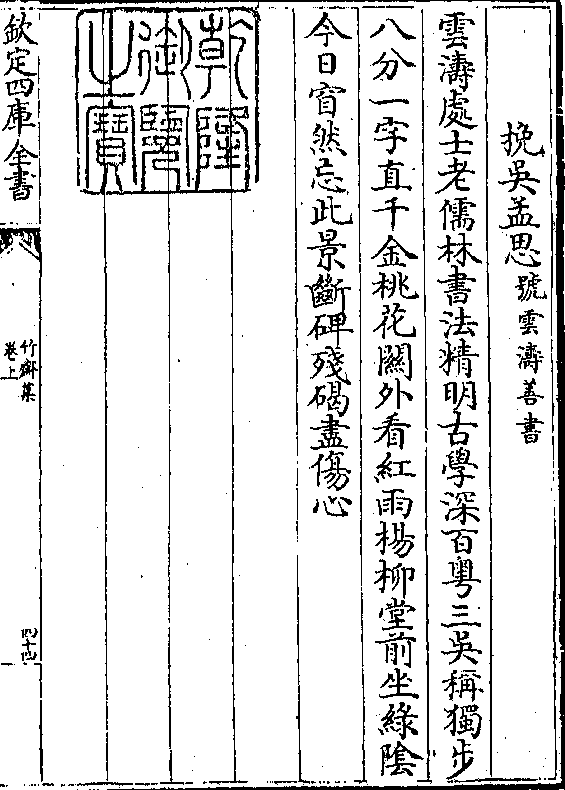 挽吳孟思號雲濤善書
雲濤處士老儒林書法精明古學深百粤三吳稱獨步
八分一字直千金桃花關外看紅雨楊柳堂前坐綠陰
今日窅然忘此景斷碑殘碣盡傷心
乾隆御覽之寶
欽定四庫全書
竹齋集
卷上
四十四